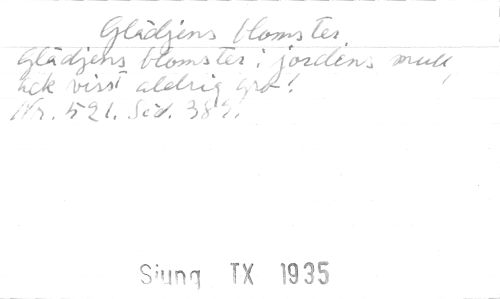 Glädjens blomster.
Glädjens blomster i jordens mull,
ack visst aldrig gro!
Nr. 521. Sid. 389.
Sjung TX 1935